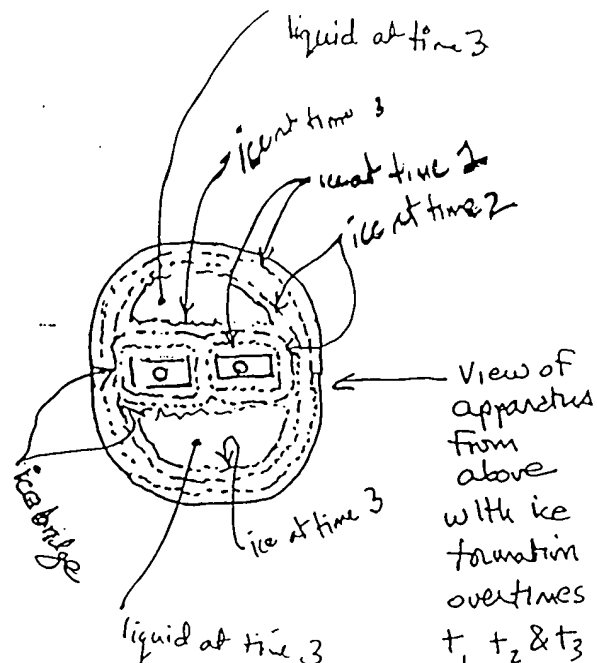 liquid at time 3
ice at time 3
ice at time 1
ice at time 2
View of
apparatus
from
above
with ice
formation
overtimes
t1 t2 & t3
ice bridge
ice at time 3
liquid at time 3